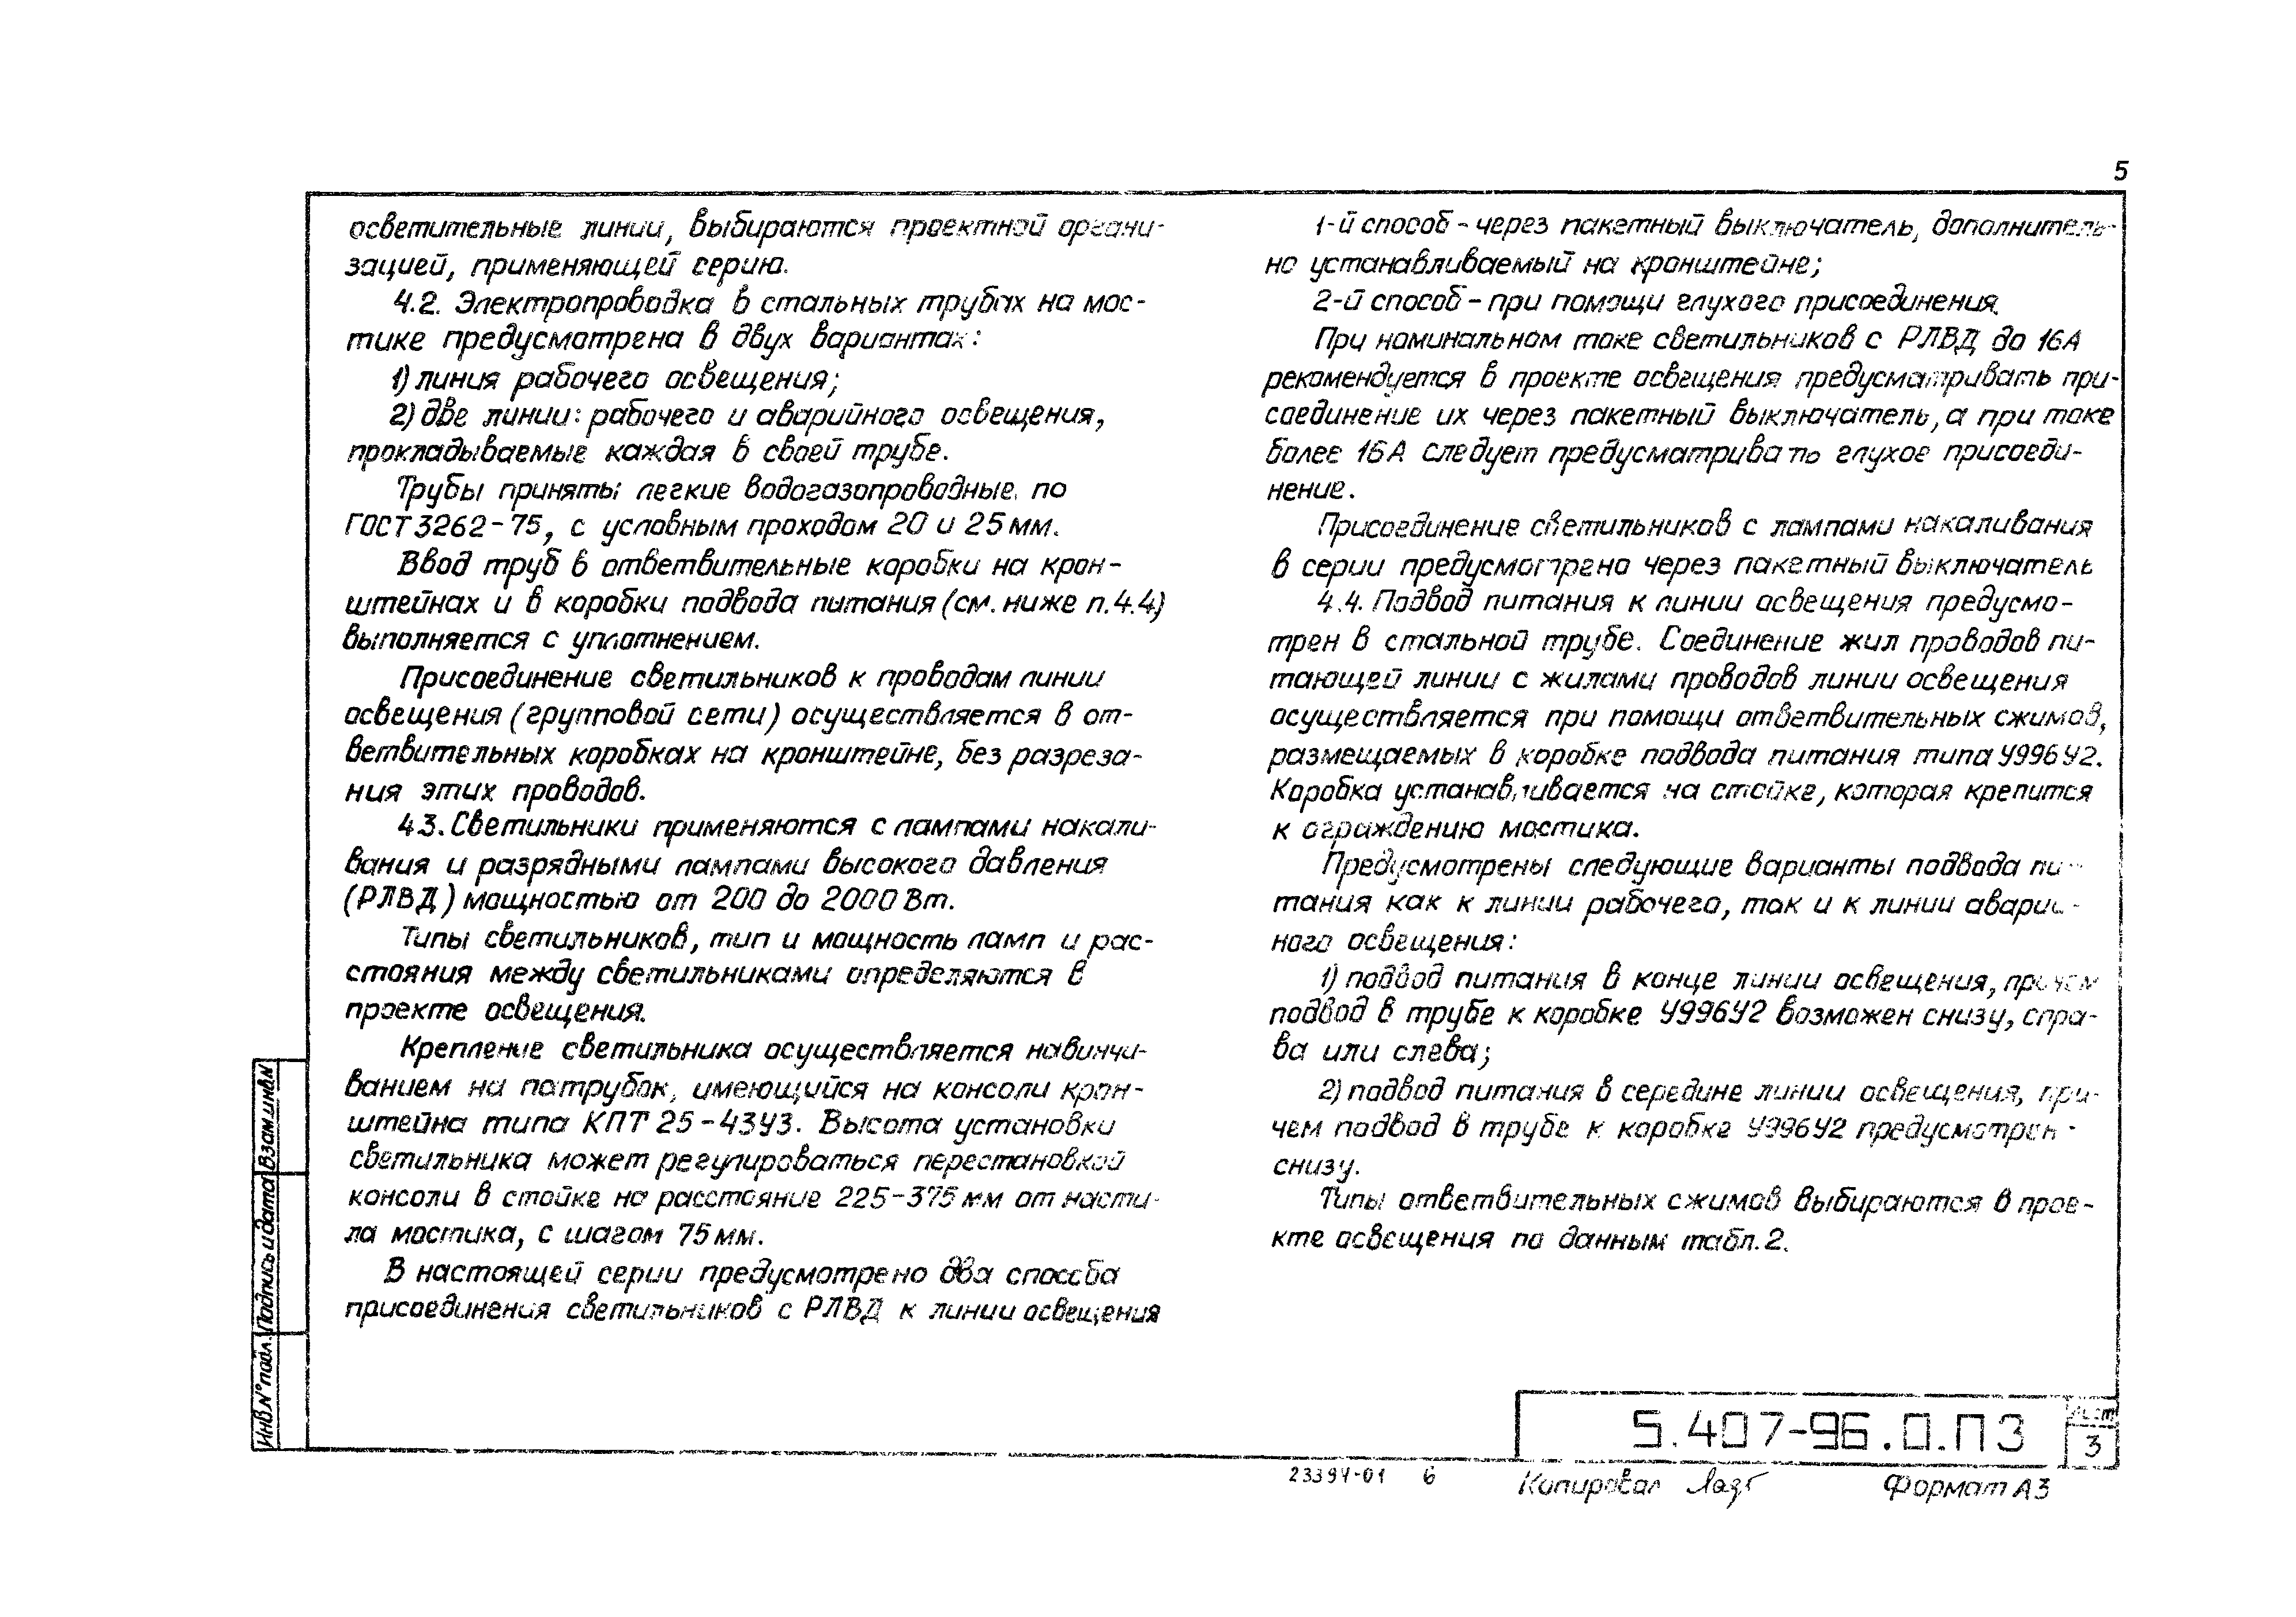 5
осветительные линии, выбираются проектной органи-
зацией, применяющей серию.
4.2. Электропроводка в стальных трубах на мос-
тике предусмотрена в двух вариантах:
1) линия рабочего освещения;
2) две линии: рабочего и аварийного освещения,
прокладываемые каждая в своей трубе.
Трубы приняты легкие водогазопроводные по
ГОСТ 3262-75, с условным проходом 20 и 25 мм.
Ввод труб в ответвительные коробки на крон-
штейнах и в коробки подвода питания (см. ниже п.4.4)
выполняется с уплотнением.
Присоединение светильников к проводам линии
освещения (групповой сети) осуществляется в от-
ветвительных коробках на кронштейне, без разреза-
ния этих проводов.
4.3. Светильники применяются с лампами накали-
вания и разрядными лампами высокого давления
(РЛВД) мощностью от 200 до 2000 Вт.
Типы светильников, тип и мощность ламп и рас-
стояния между светильниками определяются в
проекте освещения.
Крепление светильника осуществляется навинчи-
ванием на патрубок, имеющийся на консоли крон-
штейна типа КПТ 25-43У3. Высота установки
светильника может регулироваться перестановкой
консоли в стойке на расстояние 225-375 мм от насти-
ла мостика, с шагом 75 мм.
В настоящей серии предусмотрено два способа
присоединения светильников с РЛВД к линии освещения
1-й способ - через пакетный выключатель, дополнитель-
но устанавливаемый на кронштейне;
2-й способ - при помощи глухого присоединения.
При номинальном токе светильников с РЛВД до 16А
рекомендуется в проекте освещения предусматривать при-
соединение их через пакетный выключатель, а при токе
более 16А следует предусматривать глухое присоеди-
нение.
Присоединение светильников с лампами накаливания
в серии предусмотрено через пакетный выключатель
4.4. Подвод питания к линии освещения предусмо-
трен в стальной трубе. Соединение жил проводов пи-
тающей линии с жилами проводов линии освещения
осуществляется при помощи ответвительных сжимов,
размещаемых в коробке подвода питания типа У996У2.
Коробка устанавливается на стойке, которая крепится
к ограждению мостика.
Предусмотрены следующие варианты подвода пи-
тания как к линии рабочего, так и к линии аварий-
ного освещения:
1) подвод питания в конце линии освещения, причем
подвод в трубе к коробке У996У2 возможен снизу, спра-
ва или слева;
2) подвод питания в середине линии освещения, при-
чем подвод в трубе к коробке У996У2 предусмотрен
снизу.
Типы ответвительных сжимов выбираются в прое-
кте освещения по данным табл. 2.
Взам.инв.№
Подпись и дата
Инв.№ подл.
5.407-96.0.ПЗ
Лист
3
23394-01 6
Копировал
Формат А3